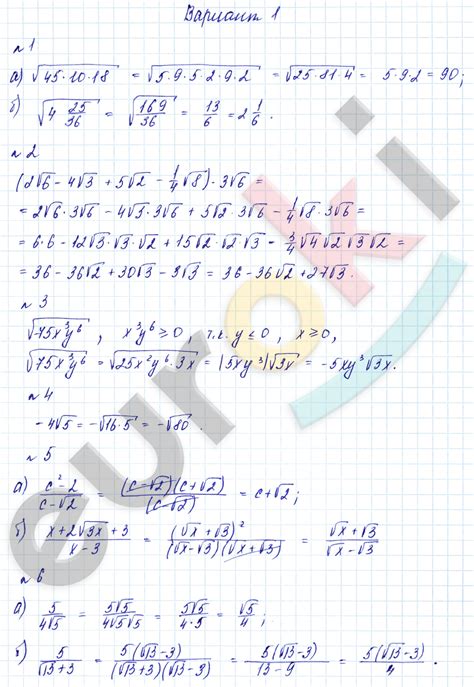 Вариант 1
№1
а) √(45·10·18) = √(5·9·5·2·9·2) = √(25·81·4) = 5·9·2 = 90;
б) √(4 25/36) = √(169/36) = 13/6 = 2 1/6.
№2
(2√6 - 4√3 + 5√2 - 1/4√8)·3√6 =
= 2√6·3√6 - 4√3·3√6 + 5√2·3√6 - 1/4√8·3√6 =
= 6·6 - 12√3·√3·√2 + 15√2·√2·√3 - 3/4√4√2√3√2 =
= 36 - 36√2 + 30√3 - 3√3 = 36 - 36√2 + 27√3.
№3
√(75x³y⁶), x³y⁶ ≥ 0, т.к. y ≤ 0, x ≥ 0,
√(75x³y⁶) = √(25x²y⁶·3x) = |5xy³|√(3x) = -5xy³√(3x).
№4
-4√5 = -√(16·5) = -√80.
№5
а) (c²-2)/(c-√2) = ((c-√2)(c+√2))/(c-√2) = c+√2;
б) (x+2√(3x)+3)/(x-3) = (√x+√3)²/((√x-√3)(√x+√3)) = (√x+√3)/(√x-√3)
№6
а) 5/(4√5) = 5√5/(4√5√5) = 5√5/(4·5) = √5/4;
б) 5/(√13+3) = 5(√13-3)/((√13+3)(√13-3)) = 5(√13-3)/(13-9) = 5(√13-3)/4.
euroki